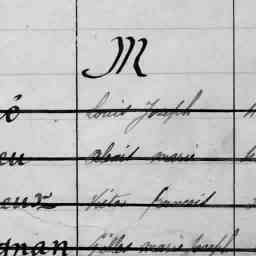 M
é Louis Joseph
eu marie
eux Victor françois
gnan Gilles marie Joseph